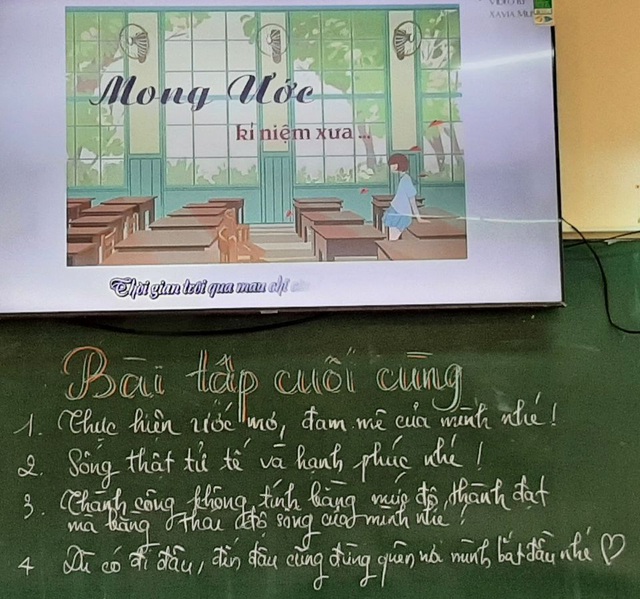 XAVIA MUSIC
Mong Ước
kỉ niệm xưa...
Thời gian trôi qua mau chỉ
Bài tập cuối cùng
1. Thực hiện ước mơ, đam mê của mình nhé!
2. Sống thật tử tế và hạnh phúc nhé!
3. Thành công không tính bằng mức độ thành đạt
mà bằng thái độ sống của mình nhé!
4 Dù có đi đâu, đến đâu cũng đừng quên nơi mình bắt đầu nhé ♡